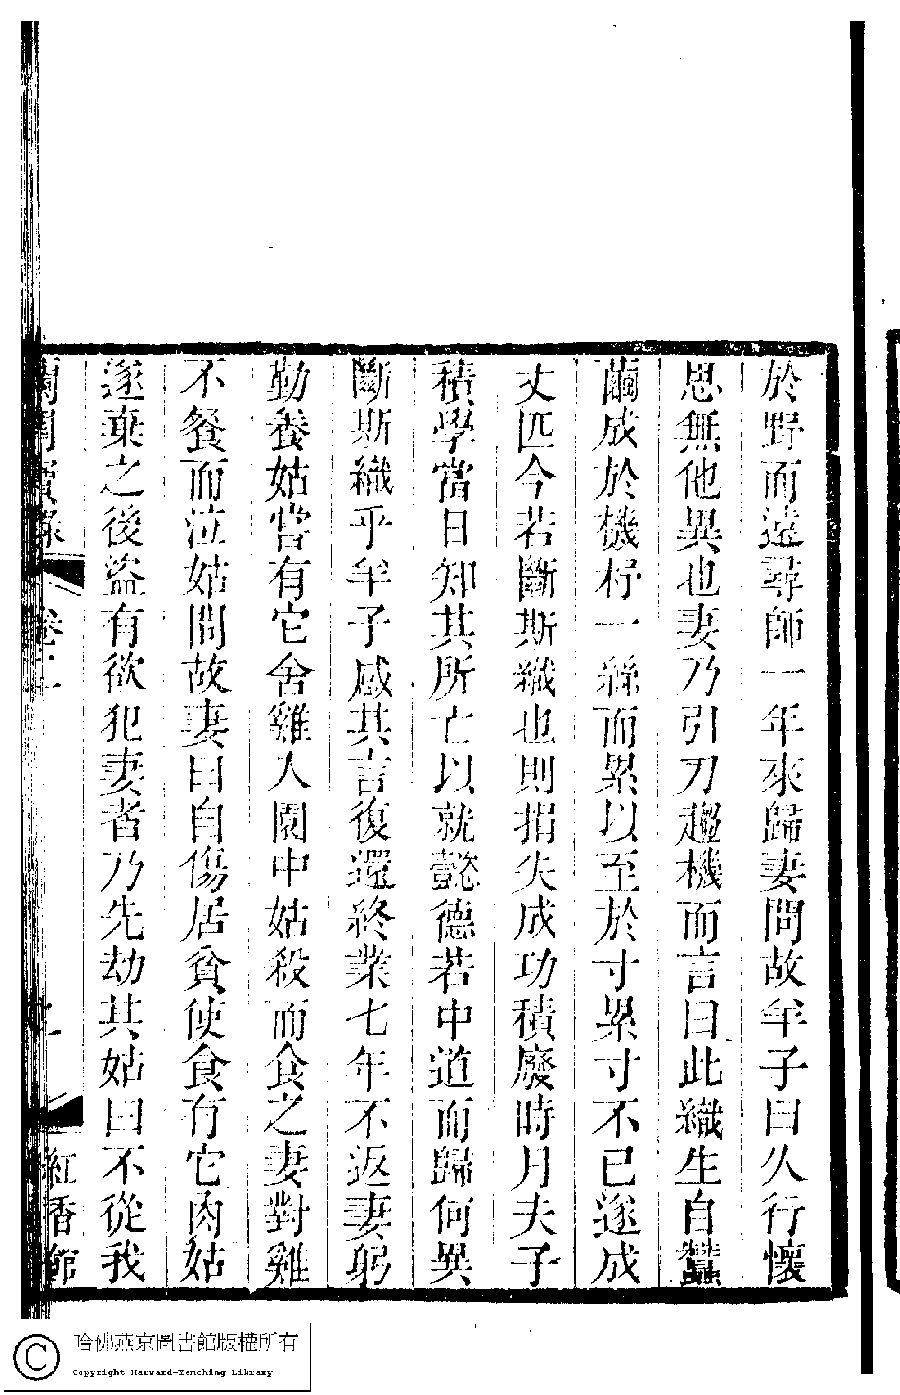 於野而遠尋師一年來歸妻問故羊子曰久行懷
思無他異也妻乃引刀趨機而言曰此織生自蠶
繭成於機杼一絲而累以至於寸累寸不已遂成
丈匹今若斷斯織也則捐失成功積廢時月夫子
積學當日知其所亡以就懿德若中道而歸何異
斷斯織乎羊子感其言復還終業七年不返妻躬
勤養姑嘗有它舍雞入園中姑殺而食之妻對雞
不餐而泣姑問故妻曰自傷居貧使食有它肉姑
遂棄之後盜有欲犯妻者乃先劫其姑曰不從我
蘭閨寶錄 卷二 紅香館
哈佛燕京圖書館版權所有
Copyright Harvard-Yenching Library